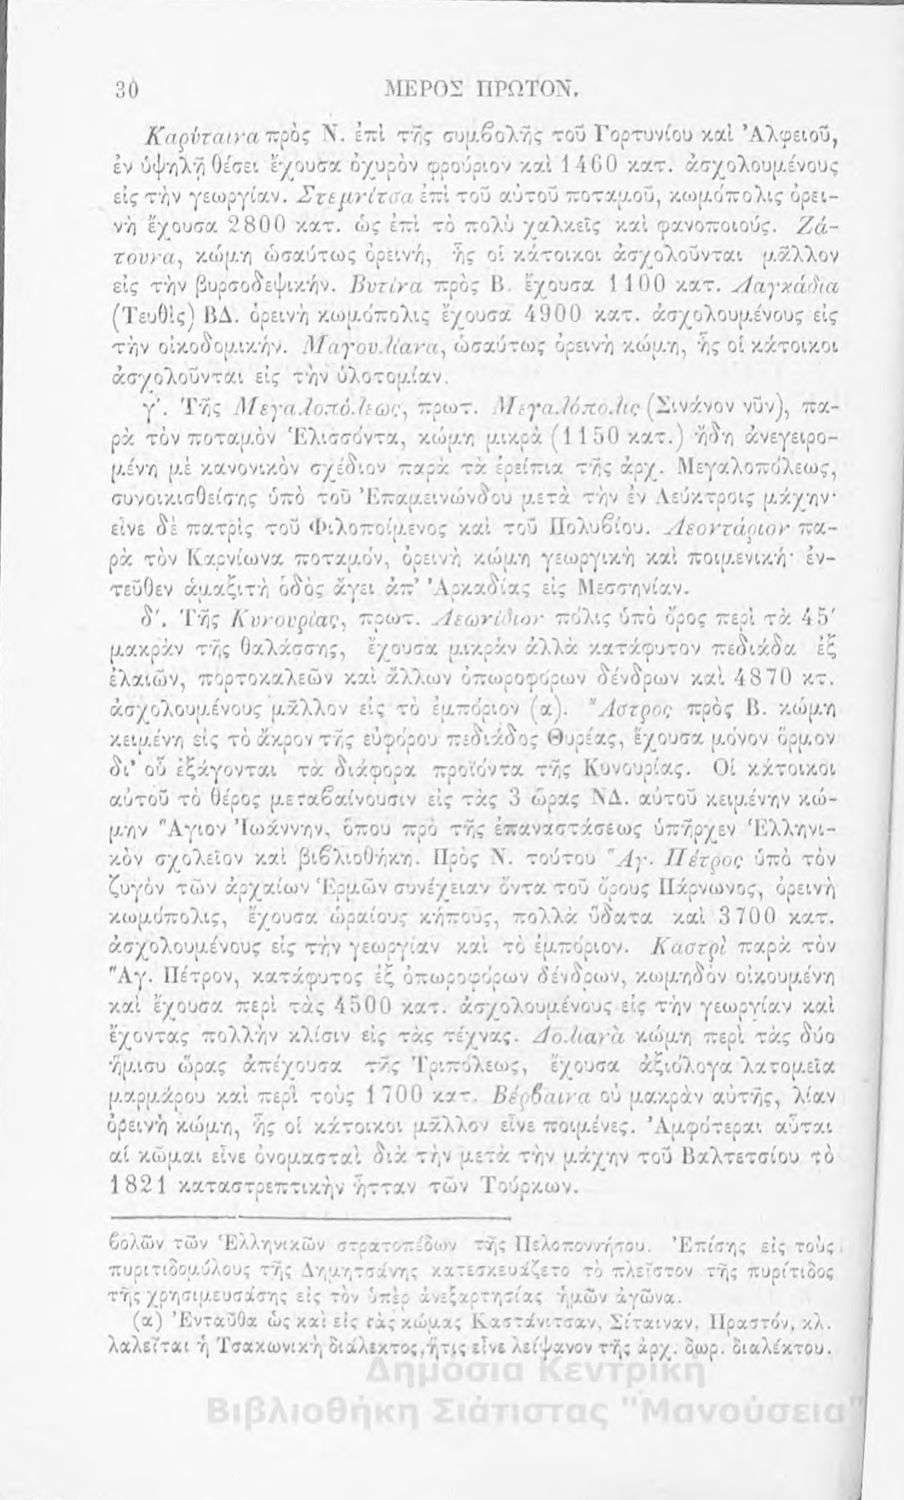 30 ΜΕΡΟΣ ΠΡΩΤΟΝ.
Καρύταινα πρὸς Ν. ἐπὶ τῆς συμβολῆς τοῦ Γορτυνίου καὶ Ἀλφειοῦ,
ἐν ὑψηλῇ θέσει ἔχουσα ὀχυρὸν φρούριον καὶ 1460 κατ. ἀσχολουμένους
εἰς τὴν γεωργίαν. Στεμνίτσα ἐπὶ τοῦ αὐτοῦ ποταμοῦ, κωμόπολις ὀρει-
νὴ ἔχουσα 2800 κατ. ὡς ἐπὶ τὸ πολὺ χαλκεῖς καὶ φανοποιούς. Ζά-
τουνα, κώμη ὡσαύτως ὀρεινή, ἧς οἱ κάτοικοι ἀσχολοῦνται μᾶλλον
εἰς τὴν βυρσοδεψικήν. Βυτίνα πρὸς Β. ἔχουσα 1100 κατ. Λαγκάδια
(Τευθὶς) ΒΔ. ὀρεινὴ κωμόπολις ἔχουσα 4900 κατ. ἀσχολουμένους εἰς
τὴν οἰκοδομικήν. Μαγουλίανα, ὡσαύτως ὀρεινὴ κώμη, ἧς οἱ κάτοικοι
ἀσχολοῦνται εἰς τὴν ὑλοτομίαν.
γ'. Τῆς Μεγαλοπόλεως, πρωτ. Μεγαλόπολις (Σινάνον νῦν), πα-
ρὰ τὸν ποταμὸν Ἑλισσόντα, κώμη μικρὰ (1150 κατ.) ἤδη ἀνεγειρο-
μένη μὲ κανονικὸν σχέδιον παρὰ τὰ ἐρείπια τῆς ἀρχ. Μεγαλοπόλεως,
συνοικισθείσης ὑπὸ τοῦ Ἐπαμεινώνδου μετὰ τὴν ἐν Λεύκτροις μάχην·
εἶνε δὲ πατρὶς τοῦ Φιλοποίμενος καὶ τοῦ Πολυβίου. Λεοντάριον πα-
ρὰ τὸν Καρνίωνα ποταμόν, ὀρεινὴ κώμη γεωργικὴ καὶ ποιμενική· ἐν-
τεῦθεν ἁμαξιτὴ ὁδὸς ἄγει ἀπ' Ἀρκαδίας εἰς Μεσσηνίαν.
δ'. Τῆς Κυνουρίας, πρωτ. Λεωνίδιον πόλις ὑπὸ ὄρος περὶ τὰ 45'
μακρὰν τῆς θαλάσσης, ἔχουσα μικρὰν ἀλλὰ κατάφυτον πεδιάδα ἐξ
ἐλαιῶν, πορτοκαλεῶν καὶ ἄλλων ὀπωροφόρων δένδρων καὶ 4870 κτ.
ἀσχολουμένους μᾶλλον εἰς τὸ ἐμπόριον (α). Ἄστρος πρὸς Β. κώμη
κειμένη εἰς τὸ ἄκρον τῆς εὐφόρου πεδιάδος Θυρέας, ἔχουσα μόνον ὅρμον
δι' οὗ ἐξάγονται τὰ διάφορα προϊόντα τῆς Κυνουρίας. Οἱ κάτοικοι
αὐτοῦ τὸ θέρος μεταβαίνουσιν εἰς τὰς 3 ὥρας ΝΔ. αὐτοῦ κειμένην κώ-
μην Ἅγιον Ἰωάννην, ὅπου πρὸ τῆς ἐπαναστάσεως ὑπῆρχεν Ἑλληνι-
κὸν σχολεῖον καὶ βιβλιοθήκη. Πρὸς Ν. τούτου Ἅγ. Πέτρος ὑπὸ τὸν
ζυγὸν τῶν ἀρχαίων Ἑρμῶν συνέχειαν ὄντα τοῦ ὄρους Πάρνωνος, ὀρεινὴ
κωμόπολις, ἔχουσα ὡραίους κήπους, πολλὰ ὕδατα καὶ 3700 κατ.
ἀσχολουμένους εἰς τὴν γεωργίαν καὶ τὸ ἐμπόριον. Καστρὶ παρὰ τὸν
Ἅγ. Πέτρον, κατάφυτος ἐξ ὀπωροφόρων δένδρων, κωμηδὸν οἰκουμένη
καὶ ἔχουσα περὶ τὰς 4500 κατ. ἀσχολουμένους εἰς τὴν γεωργίαν καὶ
ἔχοντας πολλὴν κλίσιν εἰς τὰς τέχνας. Δολιανὰ κώμη περὶ τὰς δύο
ἥμισυ ὥρας ἀπέχουσα τῆς Τριπόλεως, ἔχουσα ἀξιόλογα λατομεῖα
μαρμάρου καὶ περὶ τοὺς 1700 κατ. Βέρβαινα οὐ μακρὰν αὐτῆς, λίαν
ὀρεινὴ κώμη, ἧς οἱ κάτοικοι μᾶλλον εἶνε ποιμένες. Ἀμφότεραι αὗται
αἱ κῶμαι εἶνε ὀνομασταὶ διὰ τὴν μετὰ τὴν μάχην τοῦ Βαλτετσίου τὸ
1821 καταστρεπτικὴν ἧτταν τῶν Τούρκων.
βολῶν τῶν Ἑλληνικῶν στρατοπέδων τῆς Πελοποννήσου. Ἐπίσης εἰς τοὺς
πυριτιδομύλους τῆς Δημητσάνης κατεσκευάζετο τὸ πλεῖστον τῆς πυρίτιδος
τῆς χρησιμευσάσης εἰς τὸν ὑπὲρ ἀνεξαρτησίας ἡμῶν ἀγῶνα.
(α) Ἐνταῦθα ὡς καὶ εἰς τὰς κώμας Καστάνιτσαν, Σίταιναν, Πραστόν, κλ.
λαλεῖται ἡ Τσακωνικὴ διάλεκτος, ἥτις εἶνε λείψανον τῆς ἀρχ. δωρ. διαλέκτου.
Δημόσια Κεντρική
Βιβλιοθήκη Σιάτιστας "Μανούσεια"